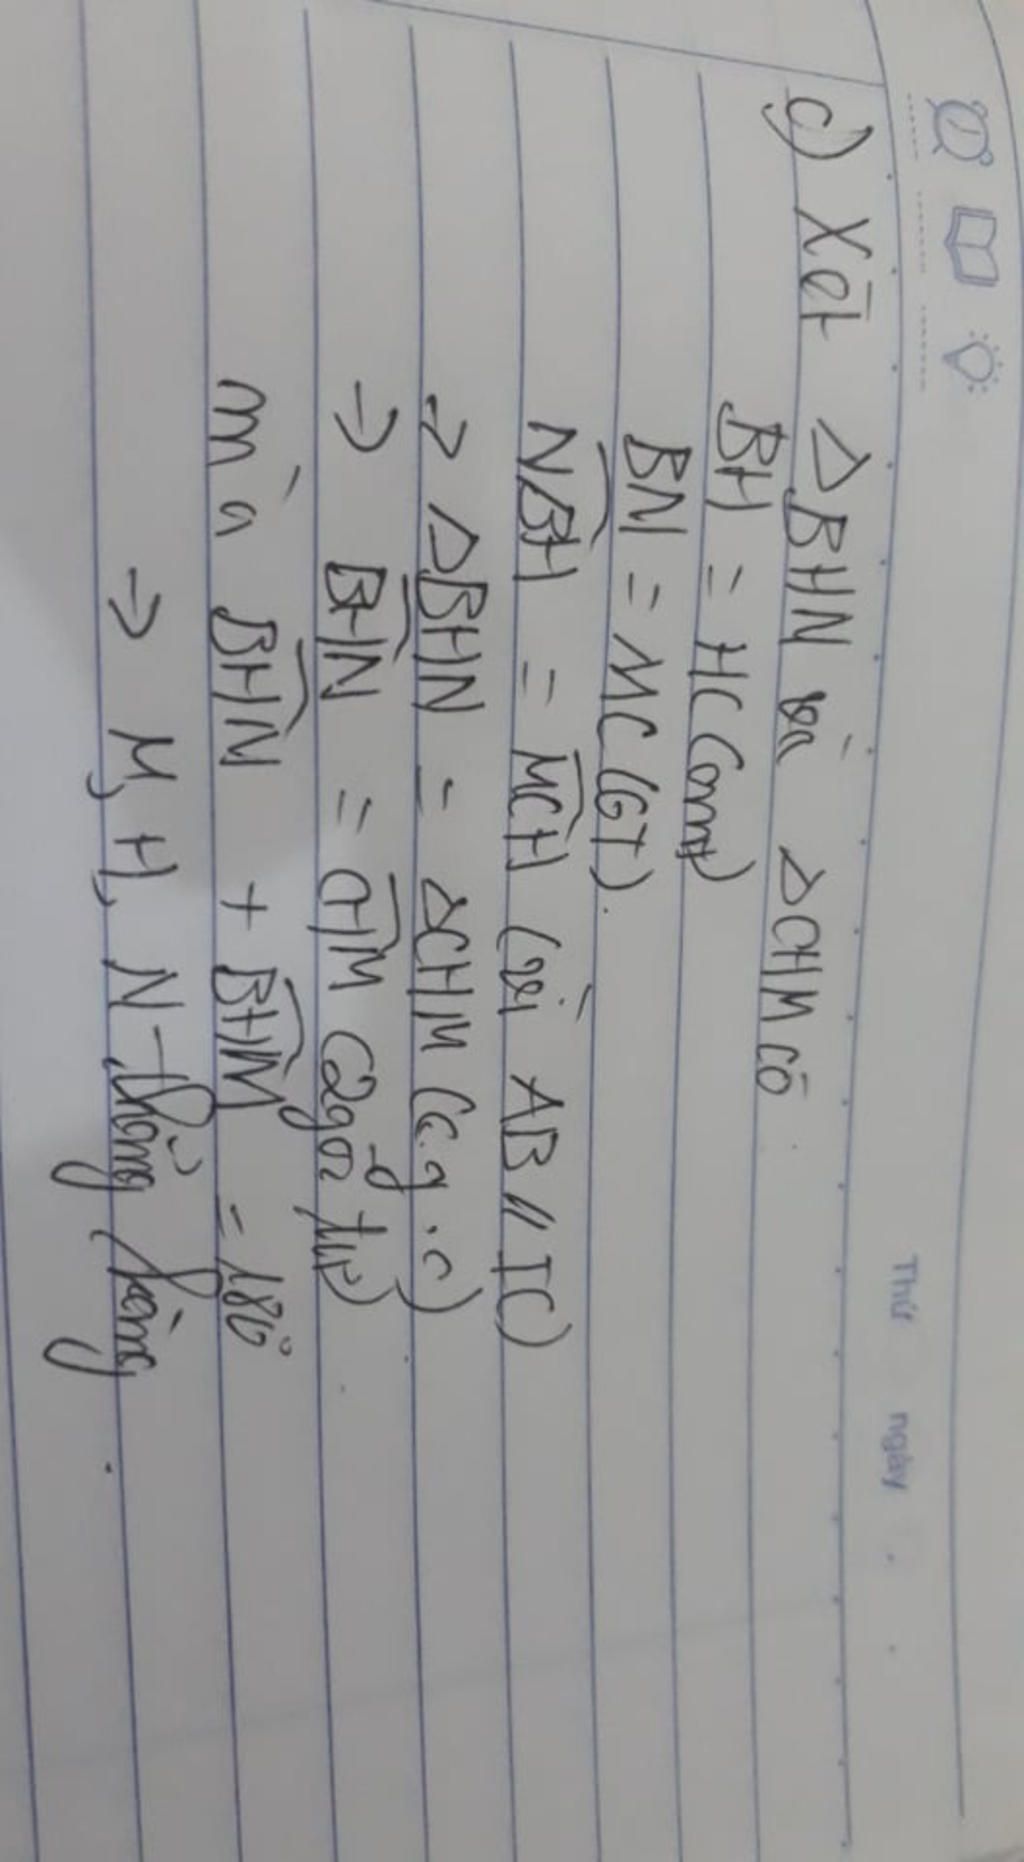 Thứ ngày
c) Xét △BHN và △CHM có
BH = HC (cmt)
BN = MC (GT).
N̂BH = M̂CH (vì AB // IC)
→ △BHN = △CHM (c.g.c)
→ B̂HN = ĈHM (2 góc t/ư)
mà B̂HN + B̂HM = 180°
→ M, H, N thẳng hàng